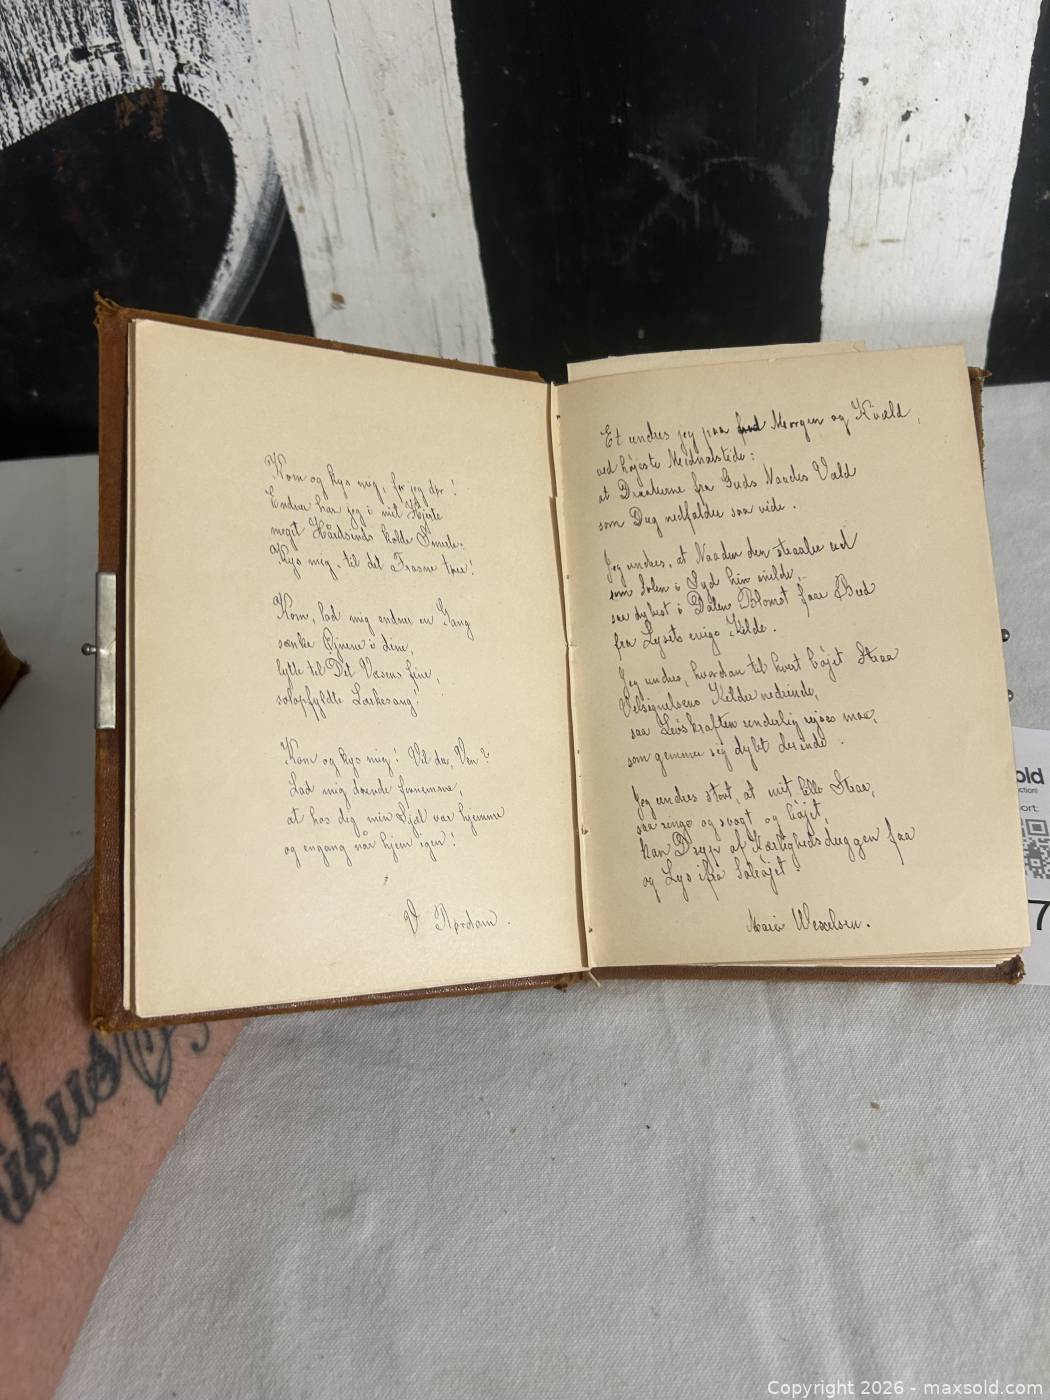 Kom og kys mig, før jeg dør!
Endnu har jeg i mit Hjerte
meget Haardsinds kolde Smerte.
Kys mig, til det Frosne tøer!
Kom, lad mig endnu en Gang
sænke Øjnene i dine,
lytte til Dit Væsens fine,
solopfyldte Lærkesang!
Kom og kys mig! Vil du, Ven?
Lad mig døende fornemme,
at hos dig min Sjæl var hjemme
og engang når hjem igen!
V Rørdam.
Et undres jeg paa Morgen og Kvæld,
ved højeste Midnatstide:
at Draaberne fra Guds Naades Væld
som Dug nedfalder saa vide.
Jeg undres, at Naaden den straaler ned
som Solen i Syd hin milde,
saa dybest i Dalen Blomst faar Bud
fra Lysets evige Kilde.
Jeg undres, hvordan til hvert bøjet Straa
Velsignelsens Kilder nedrinde,
saa Livskraften underlig rejses maa,
som gemmer sig dybt derinde.
Jeg undres stort, at mit lille Straa,
saa ringe og svagt og bøjet,
kan Dryp af Kærlighedsduggen faa
og Lys ifra Soløjet.
Marie Wexelsen.
old
7
Copyright 2026 - maxsold.com